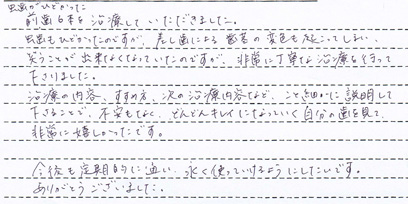 虫歯がひどかった
前歯6本を治療していただきました。
虫歯もひどかったのですが、差し歯による歯茎の変色も起こってしまい、
笑うことが出来なくなっていたのですが、非常に丁寧な治療を行って
下さりました。
治療の内容、すすめ方、次の治療内容など、こと細かに説明して
下さることで、不安もなく、どんどんキレイになっていく自分の歯を見て、
非常に嬉しかったです。
今後も定期的に通い、永く使っていけるようにしたいです。
ありがとうございました。